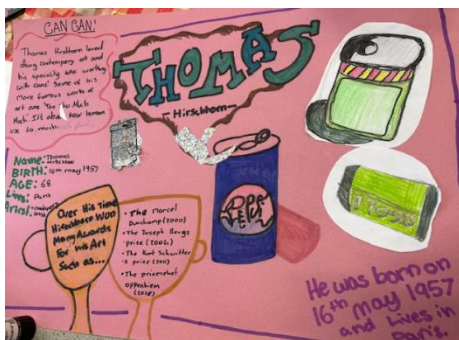 CAN CAN!
Thomas Hirshhorn loved
doing contempory art and
his specialty was working
with cans! Some of his
more famous works of
art are 'Too To Much
Much'. It's about how humans
use to much
THOMAS
- Hirschhorn -
Name: Thomas
BIRTH: 16th may 1957
AGE: 68
Lives: Paris
Artist:
Over His time
Hirschhorn Won
Many Awards
For his Art
Such as...
• The Marcel
Duschamp (2000)
• The Joseph Beuys
prize (2004)
• The Kurt Schwitter
s prize (2011)
• The
oppenhiem
(2018)
He was born on
16th may 1957
and Lives in
Paris.